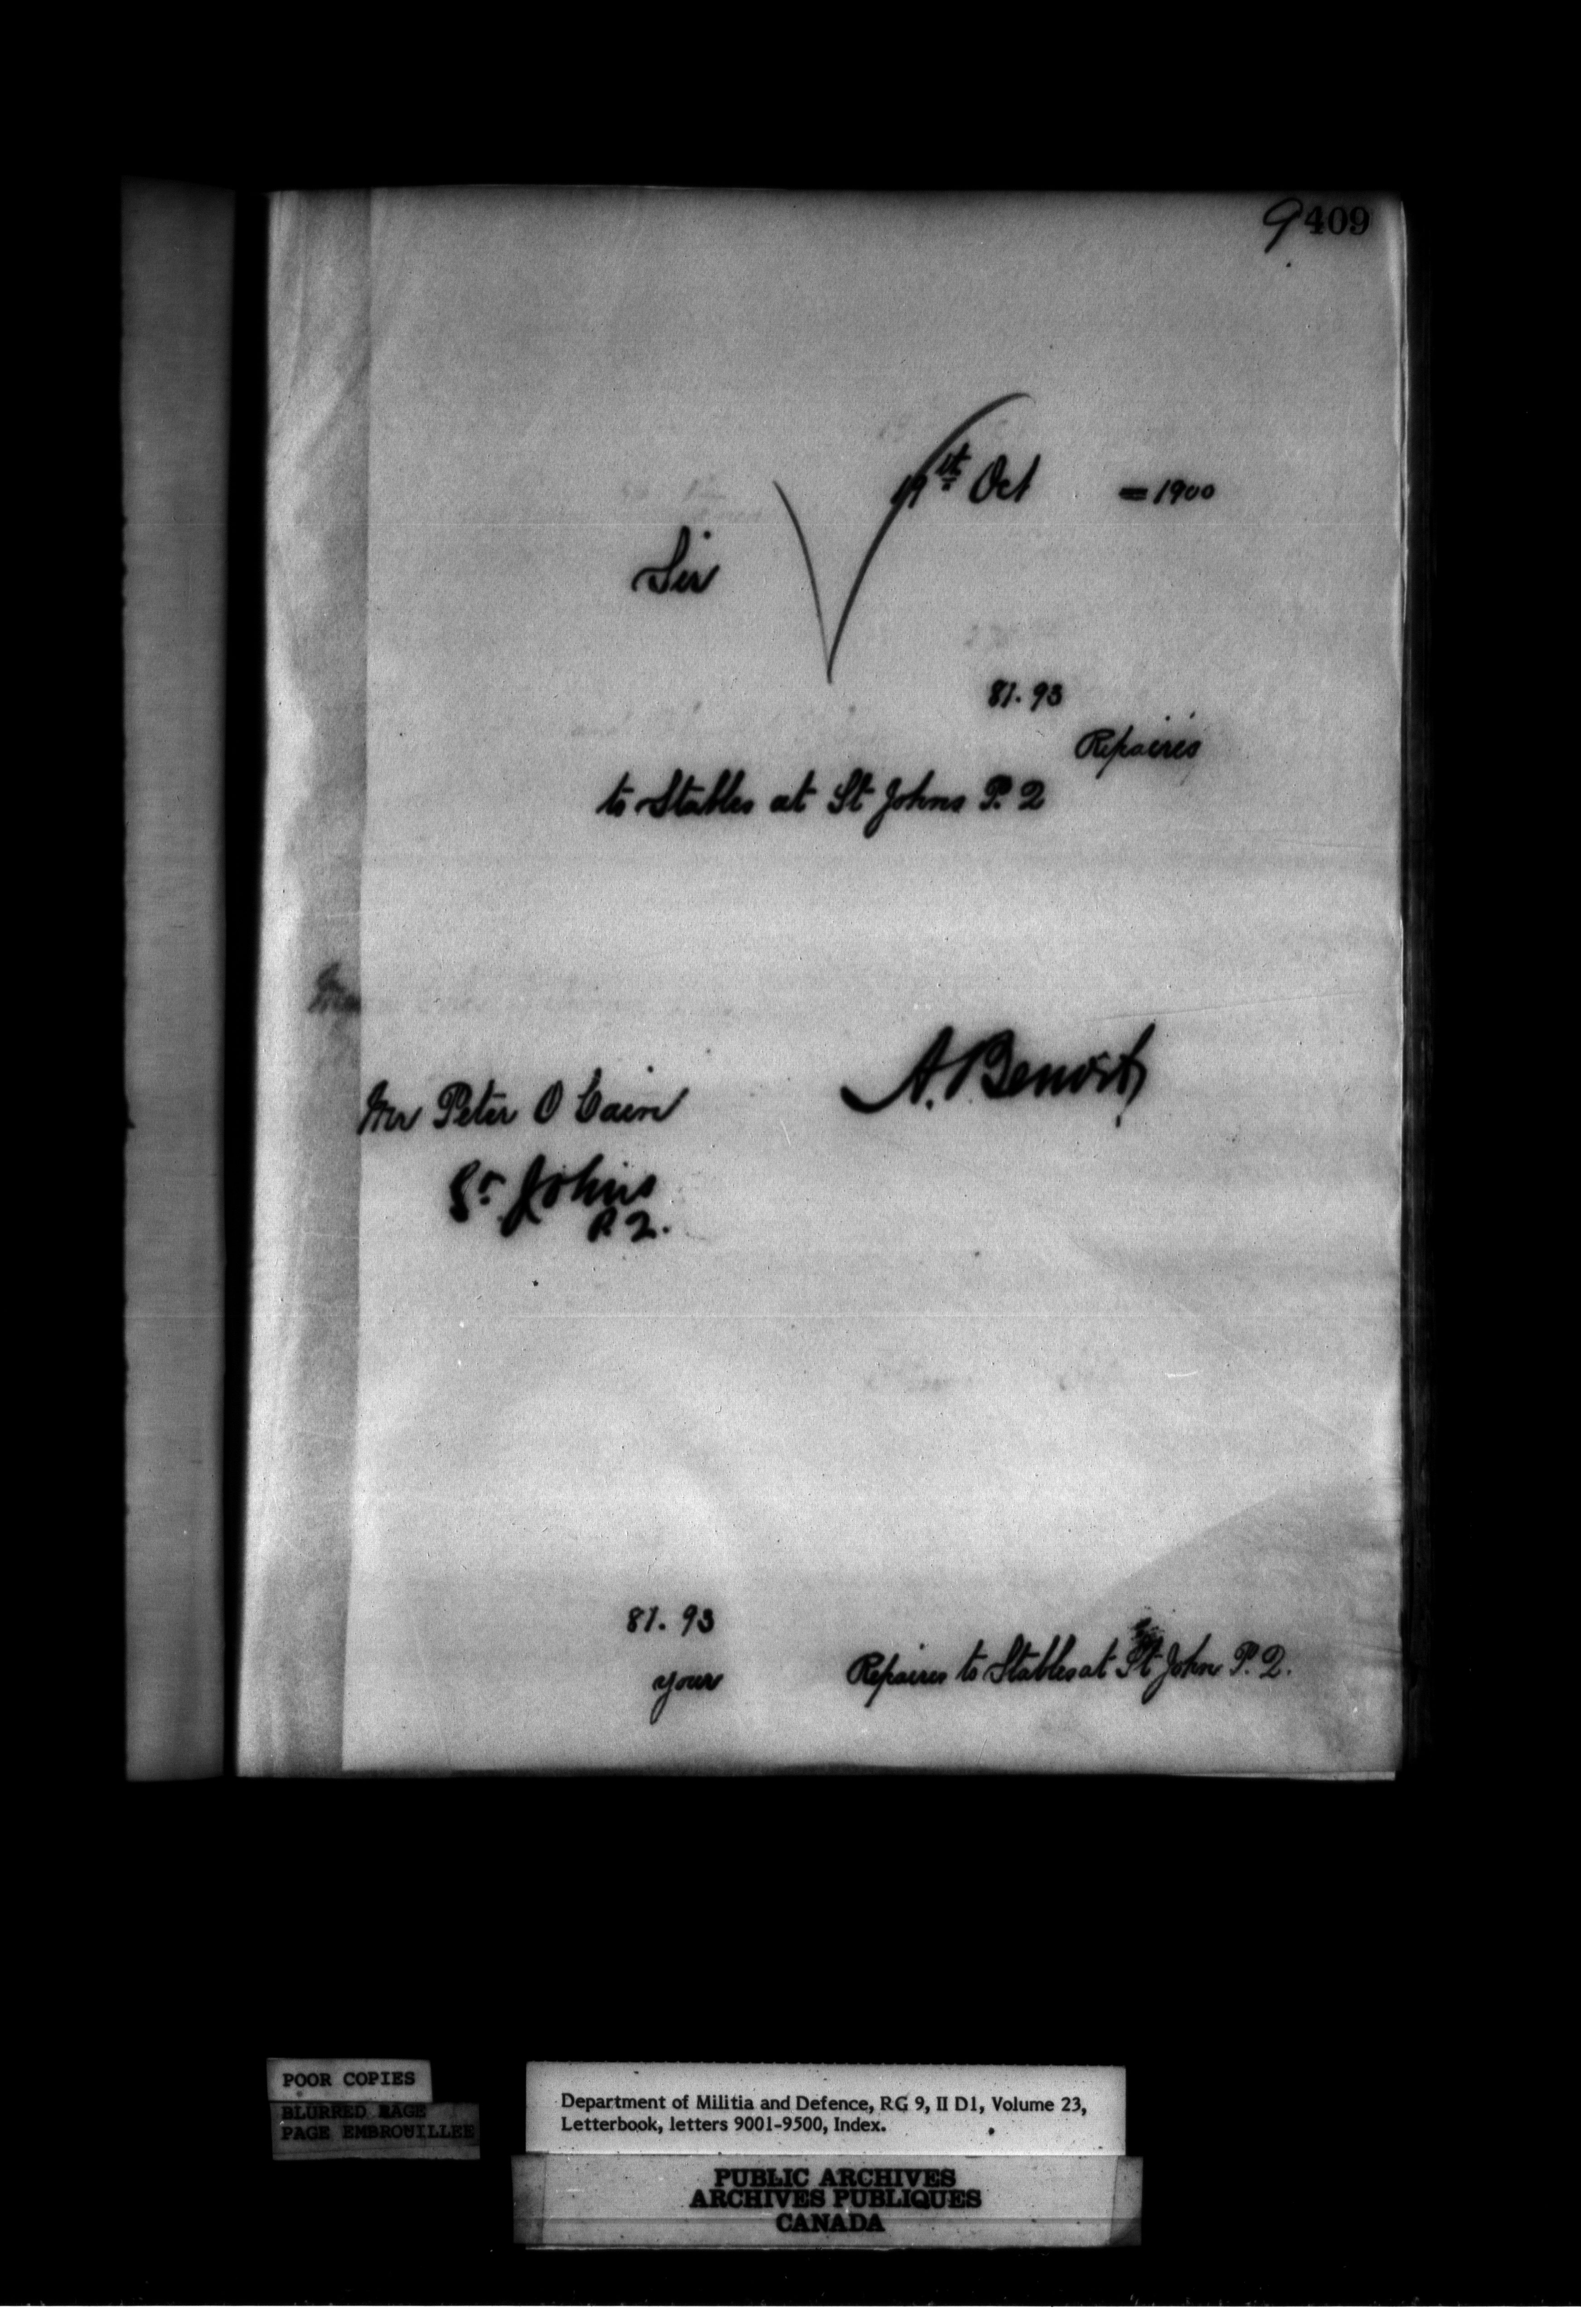 9409
19th Oct = 1900
Sir
81.93
Repaires
to Stables at St Johns P. Q
A. Benoit
Mr Peter O Cain
St Johns
P. Q.
81.93
your Repaires to Stables at St John P. Q.
POOR COPIES
BLURRED PAGE
PAGE EMBROUILLEE
Department of Militia and Defence, RG 9, II D1, Volume 23,
Letterbook, letters 9001-9500, Index.
PUBLIC ARCHIVES
ARCHIVES PUBLIQUES
CANADA